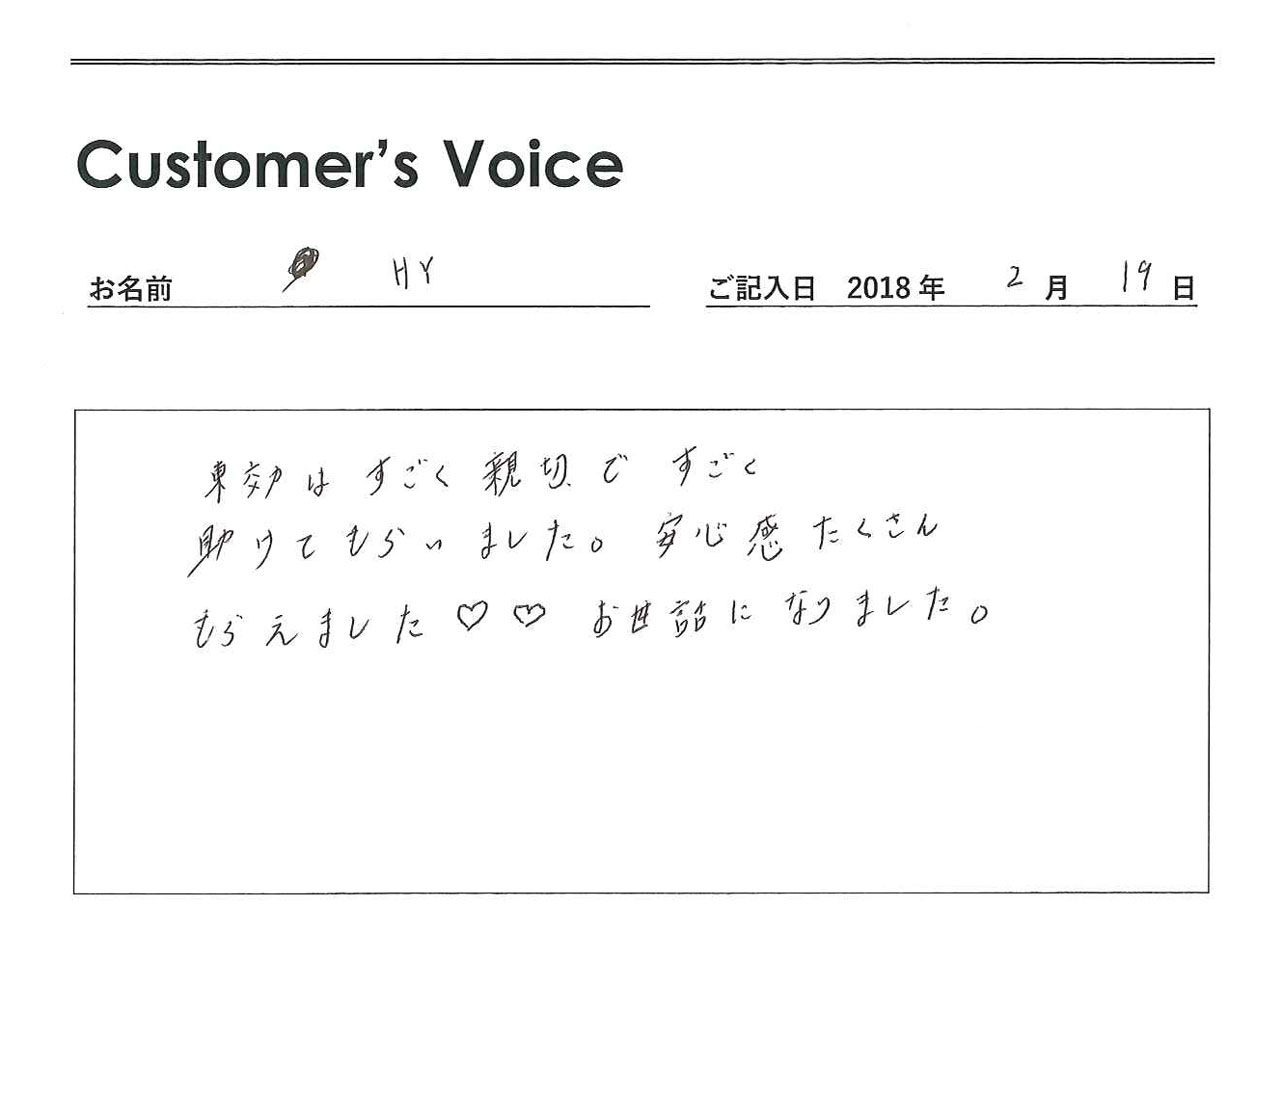 Customer's Voice
お名前 HY
ご記入日 2018年 2月 19日
東効は すごく 親切で すごく
助けてもらいました。 安心感 たくさん
もらえました♡♡ お世話になりました。